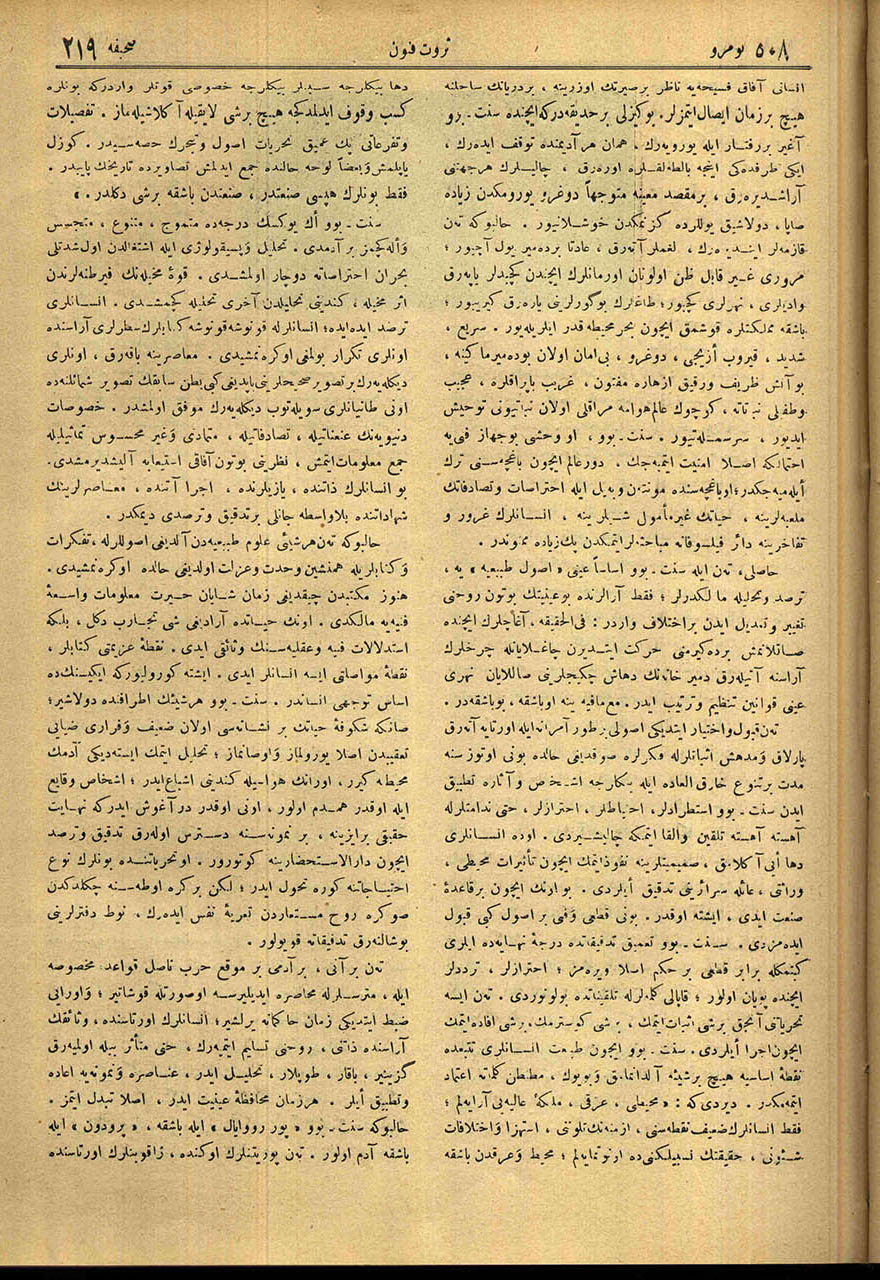 نومرو ٥٠٨
ثروت فنون
صحیفه ٢١٩
انسانی آفاق فسیحه‌یه ناظر برصیرتك اوزرینه ، بردریانك ساحلنه
هیچ برزمان ایصال ایتمزلر. بوکیزلی برحدیقه‌درکه ایچنده سنت ـ بوو
آغیر بررفتار ایله یورویه‌رك ، همان هرآدیمنده توقف ایده‌رك ،
ایکی طرفده‌کی اینجه بالطه‌لقلره اوره‌رق ، چالیلرك هرجهتنی
آراشدیره‌رق ، برمقصد معینه متوجهاً دوغرو یورومکدن زیاده
صاپا ، دولاشیق یوللرده کزنمکدن خوشلانیور . حالبوکه تەن
قازمه‌لر ایندیره‌رك ، لغملر آته‌رق ، عادتا برده‌میر یول آچیور ؛
مروری غیر قابل ظن اولونان اورمانلرك ایچندن کچیدلر یاپه‌رق
وادیلری ، نهرلری کچیور؛ طاغلرك بوکورلرینی یاره‌رق کیریور ؛
باشقه مملکتلره قوشمق ایچون بحر محیطه قدر ایلریله‌یور . سریع ،
شدید ، قیروب ازیجی ، دوغرو ، بی‌امان اولان بوده‌میرماکینه ،
بوآتش ظریف ورقیق ازهاره مفتون ، غریب یاپراقلره ، عجیب
وطفیلی نباتاته ، کوچوك عالم هوامه مراقلی اولان نباتیونی توحیش
ایدیور ، سرسمله‌تیور . سنت ـ بوو ، او وحشی بوجهاز فنی‌یه
احتمالکه اصلا امنیت ایتمیه‌جك ، دورعالم ایچون باغچه‌سنی ترك
ایله‌میه‌جکدر؛ اوباغچه‌سنده مونتەن وبەیل ایله احتراسات وتصادفاتك
ملعبه‌لرینه ، حیاتك غیرمأمول شیلرینه ، انسانلرك غرور و
تفاخرینه دائر فیلسوفانه مباحثه‌لر ایتمکدن پك زیاده ممنوندر .
حاصلی، تەن ایله سنت ـ بوو اساساً عینی « اصول طبیعیه » یه ،
ترصد وتحلیله مالکدرلر؛ فقط آرالرنده بوعینیتك بوتون روحنی
تغییر وتبدیل ایدن براختلاف واردر : فی‌الحقیقه ، آغاجلرك ایچنده
صاقلانمش بر ده‌کیرمنی حرکت ایتدیرن چاغلایانله چرخلرك
آراسنه آتیله‌رق دمیر خانه‌نك دهاش چکیچلرینی صاللایان نهری
عینی قوانین تنظیم وترتیب ایدر . مع‌مافیه ینه اوباشقه ، بوباشقه‌در .
تەن قبول واختیار ایتدیکی اصولی برطور آمرانه ایله اورتایه آته‌رق
پارلاق ومدهش اثباتلرله فکرلره صوقدیغی حالده بونی اوتوز سنه
مدت برتنوع خارق‌العاده ایله بیکلرجه اشخاص وآثاره تطبیق
ایدن سنت ـ بوو استطرادلر، احتیاطلر ، احترازلر ، حتی ندامتلرله
آهسته آهسته تلقین والقا ایتمکه چالیشیردی . اوده انسانلری
دها ایی آکلامق ، صمیمیتلرینه نفوذ ایتمك ایچون تأثیرات محیطی ،
وراثتی ، عائله سرائرینی تدقیق ایلردی . بونلرك ایچون برقاعدهٔ
صنعت ایدی ، ایشته اوقدر. بونی قطعی وفنی بر اصول کبی قبول
ایده‌مزدی . سنت ـ بوو تعمیق تدقیقاتده درجهٔ نهایه‌ده ایلری
کیتمکله برابر قطعی بر حکم اصلا ویره‌مز ؛ احترازلر ، ترددلر
ایچنده پویان اولور ؛ قاپالی کلمه‌لرله تلقیناتده بولونوردی . تەن ایسه
تحریاتی آنجق برشی اثبات ایتمك ، برشی کوسترمك ، برشی افاده ایتمك
ایچون اجرا ایلردی. سنت ـ بوو ایچون طبیعت انسانلری تتبعده
نقطهٔ اساسیه هیچ برشیئه آلدانمامق وبویوك ، مطنطن کلماته اعتماد
ایتمه‌مکدر . دیردی‌که : « محیطی ، عرقی ، ملکهٔ عالیه‌یی آرایه‌لم ؛
فقط انسانلرك ضعیف نقطه‌سنی ، ازمنه‌نك تلوننی ، استهزا واختلافات
شئونی ، حقیقتك نسبیلکنی‌ده اونوتمایه‌لم ؛ محیط وعرقدن باشقه
دها بیکلرجه سببلر بیکلرجه خصوصی قوتلر واردرکه بونلره
کسب وقوف ایدلمدکجه هیچ برشی لایقیله آکلاشیله‌ماز . تفصیلات
وتفرعاتی پك عمیق تحریات اصول وتحجرك حصه‌سیدر. کوزل
یاپلمش وبعضاً لوحه حالنده جمع ایدلمش تصاویرده تاریخك پاییدر .
فقط بونلرك هپسی صنعتدر ، صنعتدن باشقه برشی دکلدر. »
سنت ـ بوو اك یوکسك درجه‌ده متموج ، متنوع ، متجسس
واله‌کچمز برآدمدی . تحلیل وپسیقولوژی ایله اشتغالدن اول شدتلی
بحران احتراساته دوچار اولمشدی . قوهٔ مخیله‌نك فیرطنه‌لرندن
اثر مخیله ، کندینی تحلیلدن آخری تحلیله کچمشدی . انسانلری
ترصد ایده‌ایده؛ انسانلرله قونوشه‌قونوشه کتابلرك سطرلری آراسنده
اونلری تکرار بولمغی اوکرەنمشیدی . معاصرینه باقه‌رق ، اونلری
دیکله‌یه‌رك برتصویر صحیحلرینی یاپدیغی کبی بطن سابقك تصویر شمائلنده‌ده
اونی طانیانلری سویله‌توب دیکله‌یه‌رك موفق اولمشدر . خصوصات
دنیویه‌نك عنعناتیله ، تصادفاتیله ، متمادی وغیر محسوس تماثیلیله
جمع معلومات ایتمش ، نظرینی بوتون آفاقی استیعابه آلیشدیرمشدی.
بو انسانلرك ذاتنده ، یازیلرنده ، اجرا آتنده ، معاصرلرینك
شهاداتنده بلاواسطه جانلی برتدقیق وترصدی دیمکدر .
حالبوکه تەن هرشیئی علوم طبیعیه‌دن آلدیغی اصوللرله ، تفکرات
وکتابلریله همنشین وحدت وعزلت اولدیغی حالده اوکرەنمشیدی .
هنوز مکتبدن چیقدیغی زمان شایان حیرت معلومات واسعهٔ
فنیه‌یه مالکدی . اونك حیاتده آرادیغی شی تجارب دکل ، بلکه
استدلالات فنیه وعقلیه‌سنك وثائقی ایدی . نقطهٔ عزیمتی کتابلر ،
نقطهٔ مواصلتی ایسه انسانلر ایدی. ایشته کورولیورکه ایکیسنك‌ده
اساس توجهی انساندر . سنت ـ بوو هرشیئك اطرافنده دولاشیر؛
صانکه شکوفهٔ حیاتك بر نشانه‌سی اولان ضعیف وفراری ضیایی
تعقیبدن اصلا یورولماز واوصانماز ؛ تحلیل ایتمك ایسته‌دیکی آدمك
محیطنه کیرر، اورانك هواسیله کندینی اشباع ایدر ؛ اشخاص وقایع
ایله اوقدر همدم اولور ، اونی اوقدر درآغوش ایدرکه نهایت
حقیقی برایزینه ، بر نمونه‌سنه دسترس اوله‌رق تدقیق وترصد
ایچون دارالاستحضارینه کوتورور . اوتحریاتنده بونلرك نوع
احتیاجاتنه کوره تحول ایدر ؛ لکن برکره اوطه‌سنه چکلدکدن
صوکره روح مستعاردن تعریهٔ نفس ایده‌رك ، نوط دفترلرینی
بوشالته‌رق تدقیقاته قویولور .
تەن برآنی ، برآدمی بر موقع حرب ناصل قواعد مخصوصه
ایله ، مترسلرله محاصره ایدیلیرسه اوصورتله قوشاتیر ؛ واورایی
ضبط ایتدیکی زمان حاکمانه یرلشیر؛ انسانلرك اورتاسنده ، وثائقك
آراسنده ذاتنی ، روحنی تسلیم ایتمیه‌رك ، حتی متأثر بیله اولمیه‌رق
کزینیر ، باقار ، طوپلار ، تحلیل ایدر ، عناصره ونمونه‌یه اعاده
وتطبیق ایلر . هرزمان محافظهٔ عینیت ایدر ، اصلا تبدل ایتمز .
حالبوکه سنت ـ بوو « پور روویال » ایله باشقه ، « پرودون » ایله
باشقه آدم اولور . تەن پوریتنلرك اوکنده ، ژاقوبنلرك اورتاسنده